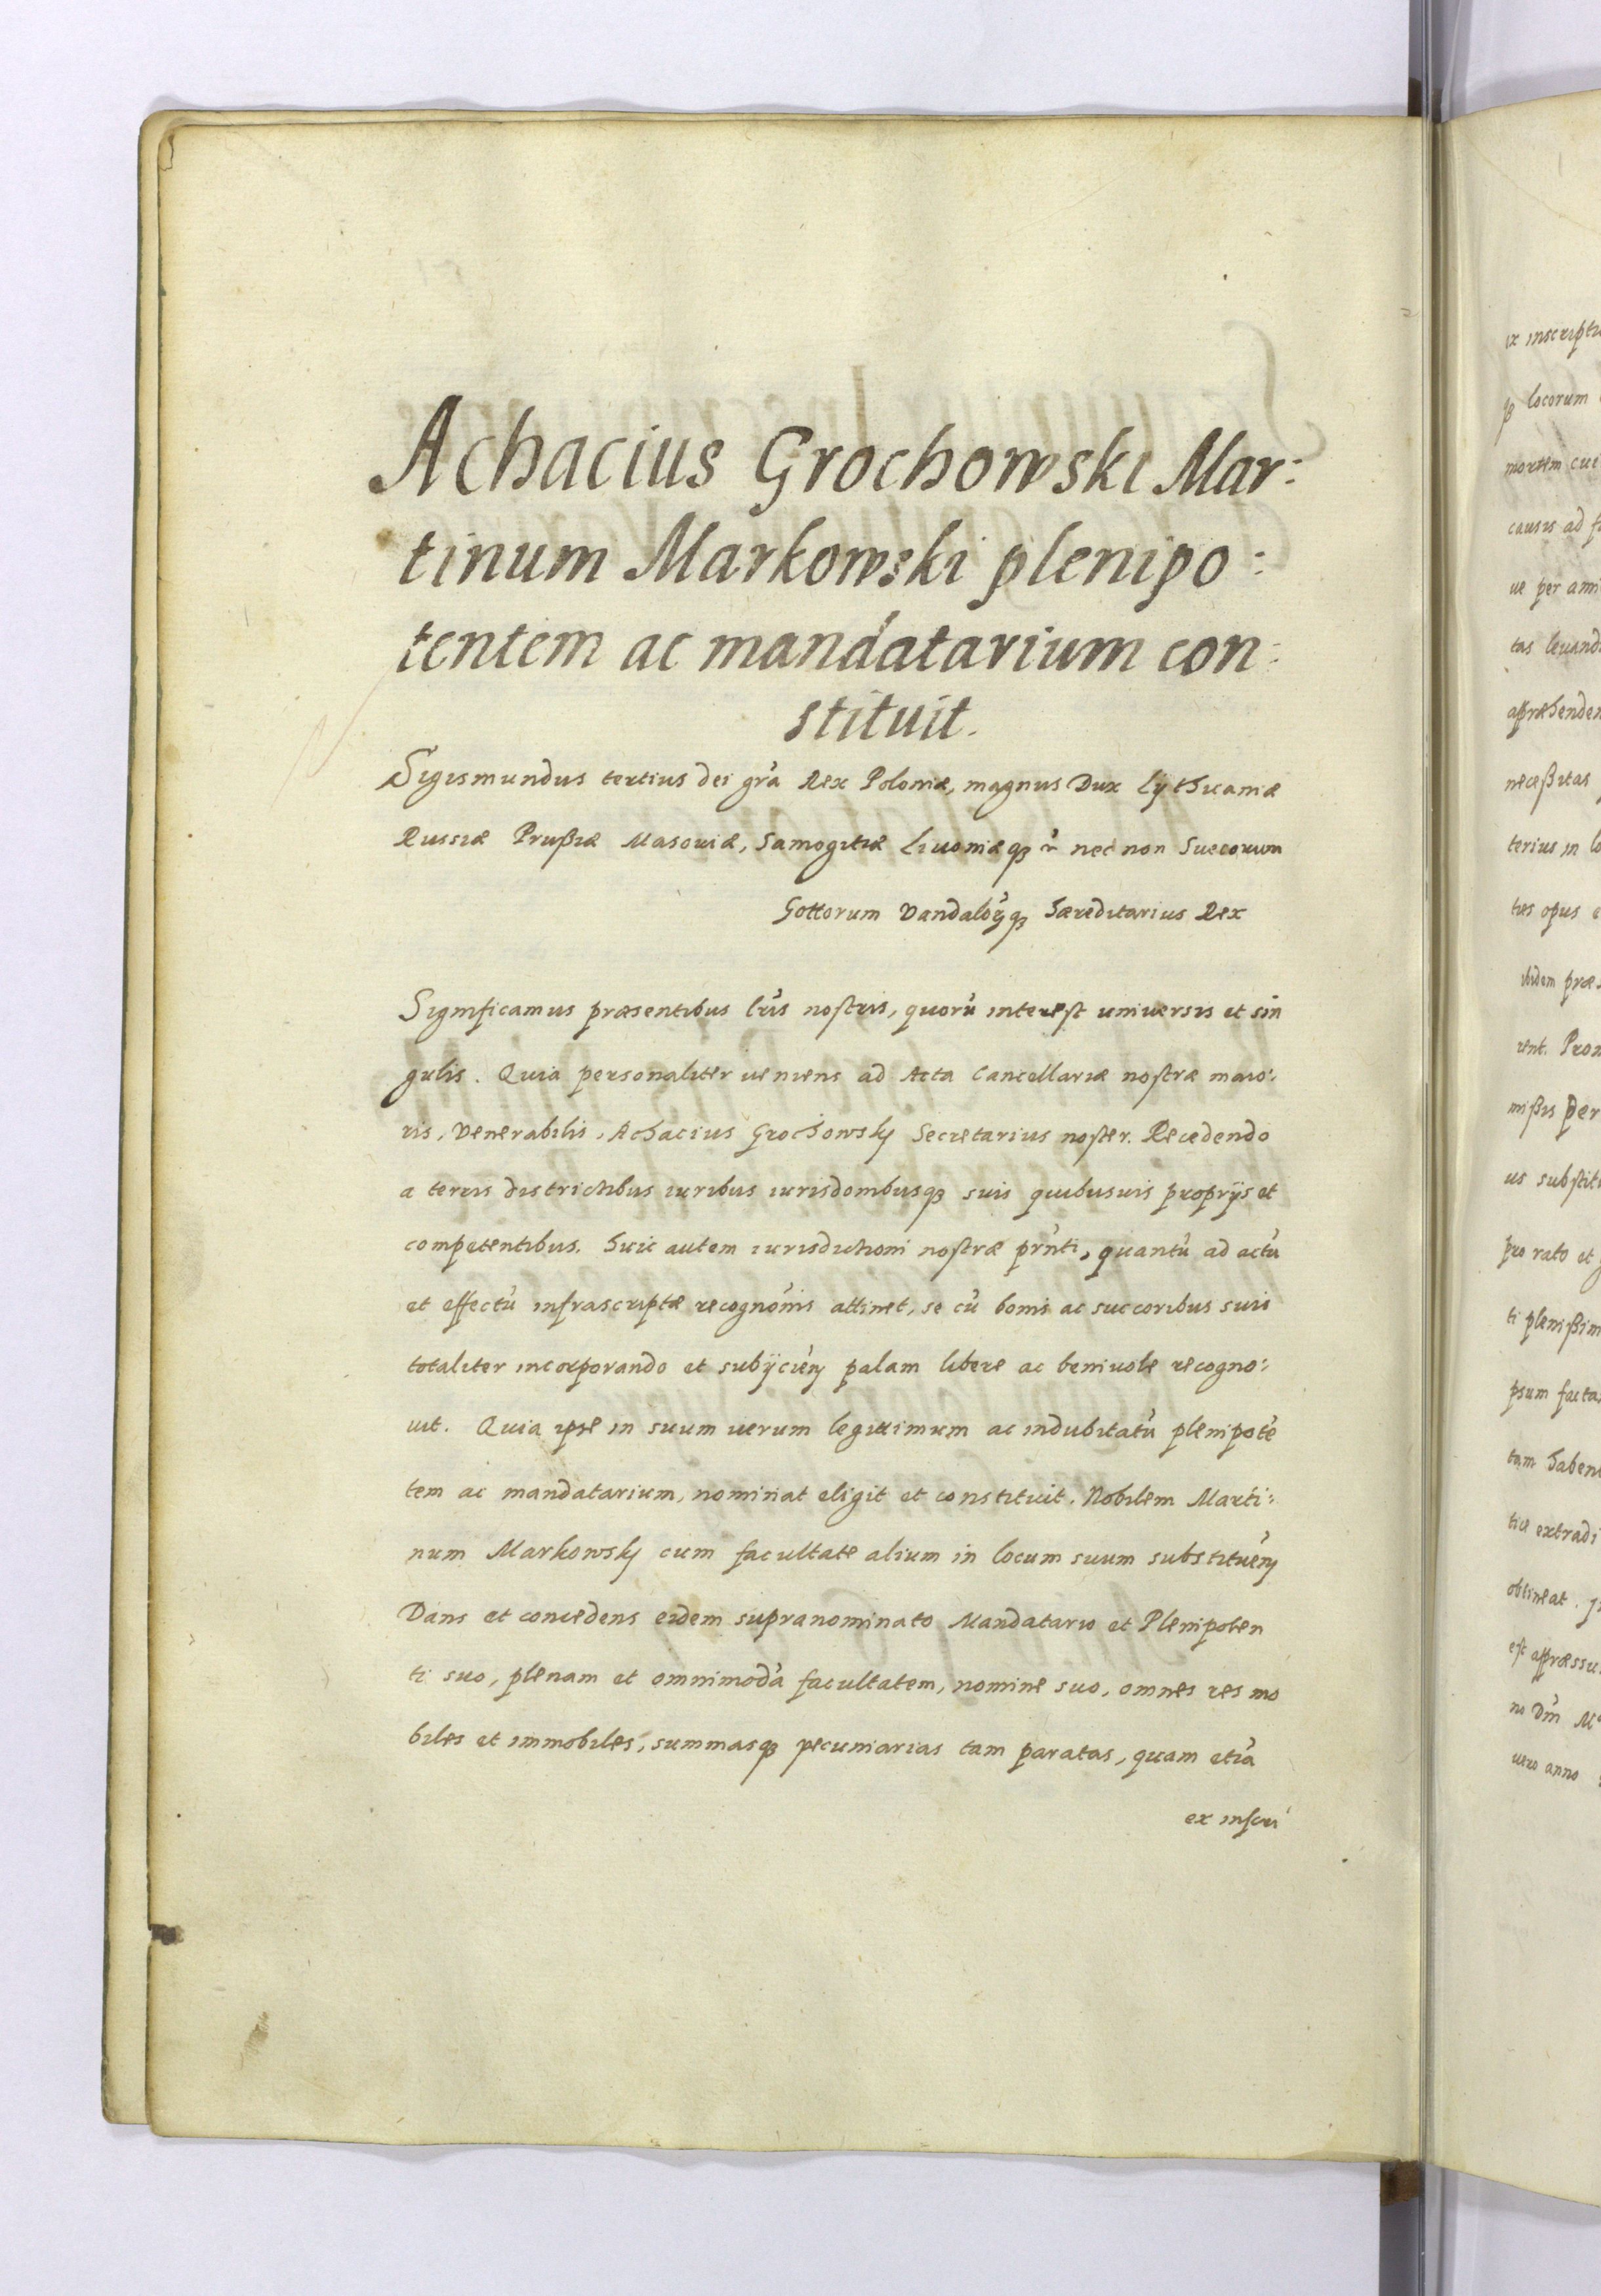 Achacius Grochowski Mar:
tinum Markowski plenipo:
tentem ac mandatarium con:
stituit.
Sigismundus tertius dei gr̃a Rex Poloniæ, magnus Dux Lythuaniæ
Russiæ Prußiæ Masouiæ, Samogitiæ Liuoniæqꝫ nec non Suecorum
Gottorum Vandaloꝝqꝫ hæreditarius Rex
Significamus præsentibus lr̃is nostris, quorũ interest uniuersis et sin
gulis. Quia personaliter ueniens ad Acta Cancellariæ nostræ maio:
ris, Venerabilis, Achacius Grochowsky Secretarius noster. Recedendo
a terris districtibus iuribus iurisdombusqꝫ suis quibusuis proprijs et
competentibus. Huic autem iurisdictioni nostræ pr̃nti, quantũ ad actũ
et effectũ infrascriptæ recognõnis attinet, se cũ bonis ac succoribus suis
totaliter incorporando et subijcien̄ palam libere ac beniuole recogno:
uit. Quia ipse in suum uerum legittimum ac indubitatũ plenipotẽ
tem ac mandatarium, nominat eligit et constituit. Nobilem Marti:
num Markowsky cum facultate alium in locum suum substituen̄
Dans et concedens eidem supranominato Mandatario et Plenipoten
ti suo, plenam et omnimodã facultatem, nomine suo, omnes res mo
biles et immobiles, summasqꝫ pecuniarias tam paratas, quam etiã
ex inscri
ix inscriptio
locorum
mortem cui
causis ad f
ue per ami
tas leuand
appræhenden
neceßitas
terius in lo
ties opus e
ibidem præ
rent. Prom
mißis per
us substit
pro rato et
ti plenißim
psum facta
tam haben
tiæ extradi
obtineat.
est appræssu
no Dm̃ M
uero anno